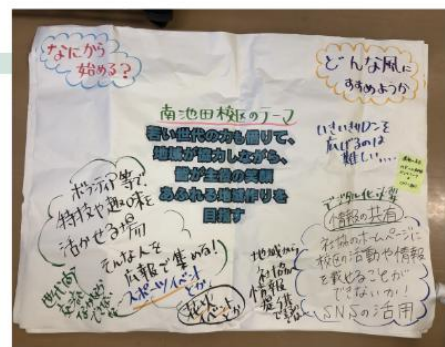 なにから
始める?
どんな風に
すすめようか
南池田校区のテーマ
若い世代の力も借りて、
地域が協力しながら、
皆が主役の笑顔
あふれる地域作りを
目指す
いきいきサロンを
広げるのは
難しい…
ボランティア等で、
特技や趣味を
活かせる場
そんな人を
広報で集める!
スポーツイベント
とか、
イベントか
地域から
社協の
情報
発信
デジタル化が必要
情報の共有
社協のホームページに
校区の活動や情報
を載せることが
できないか!
SNSの活用